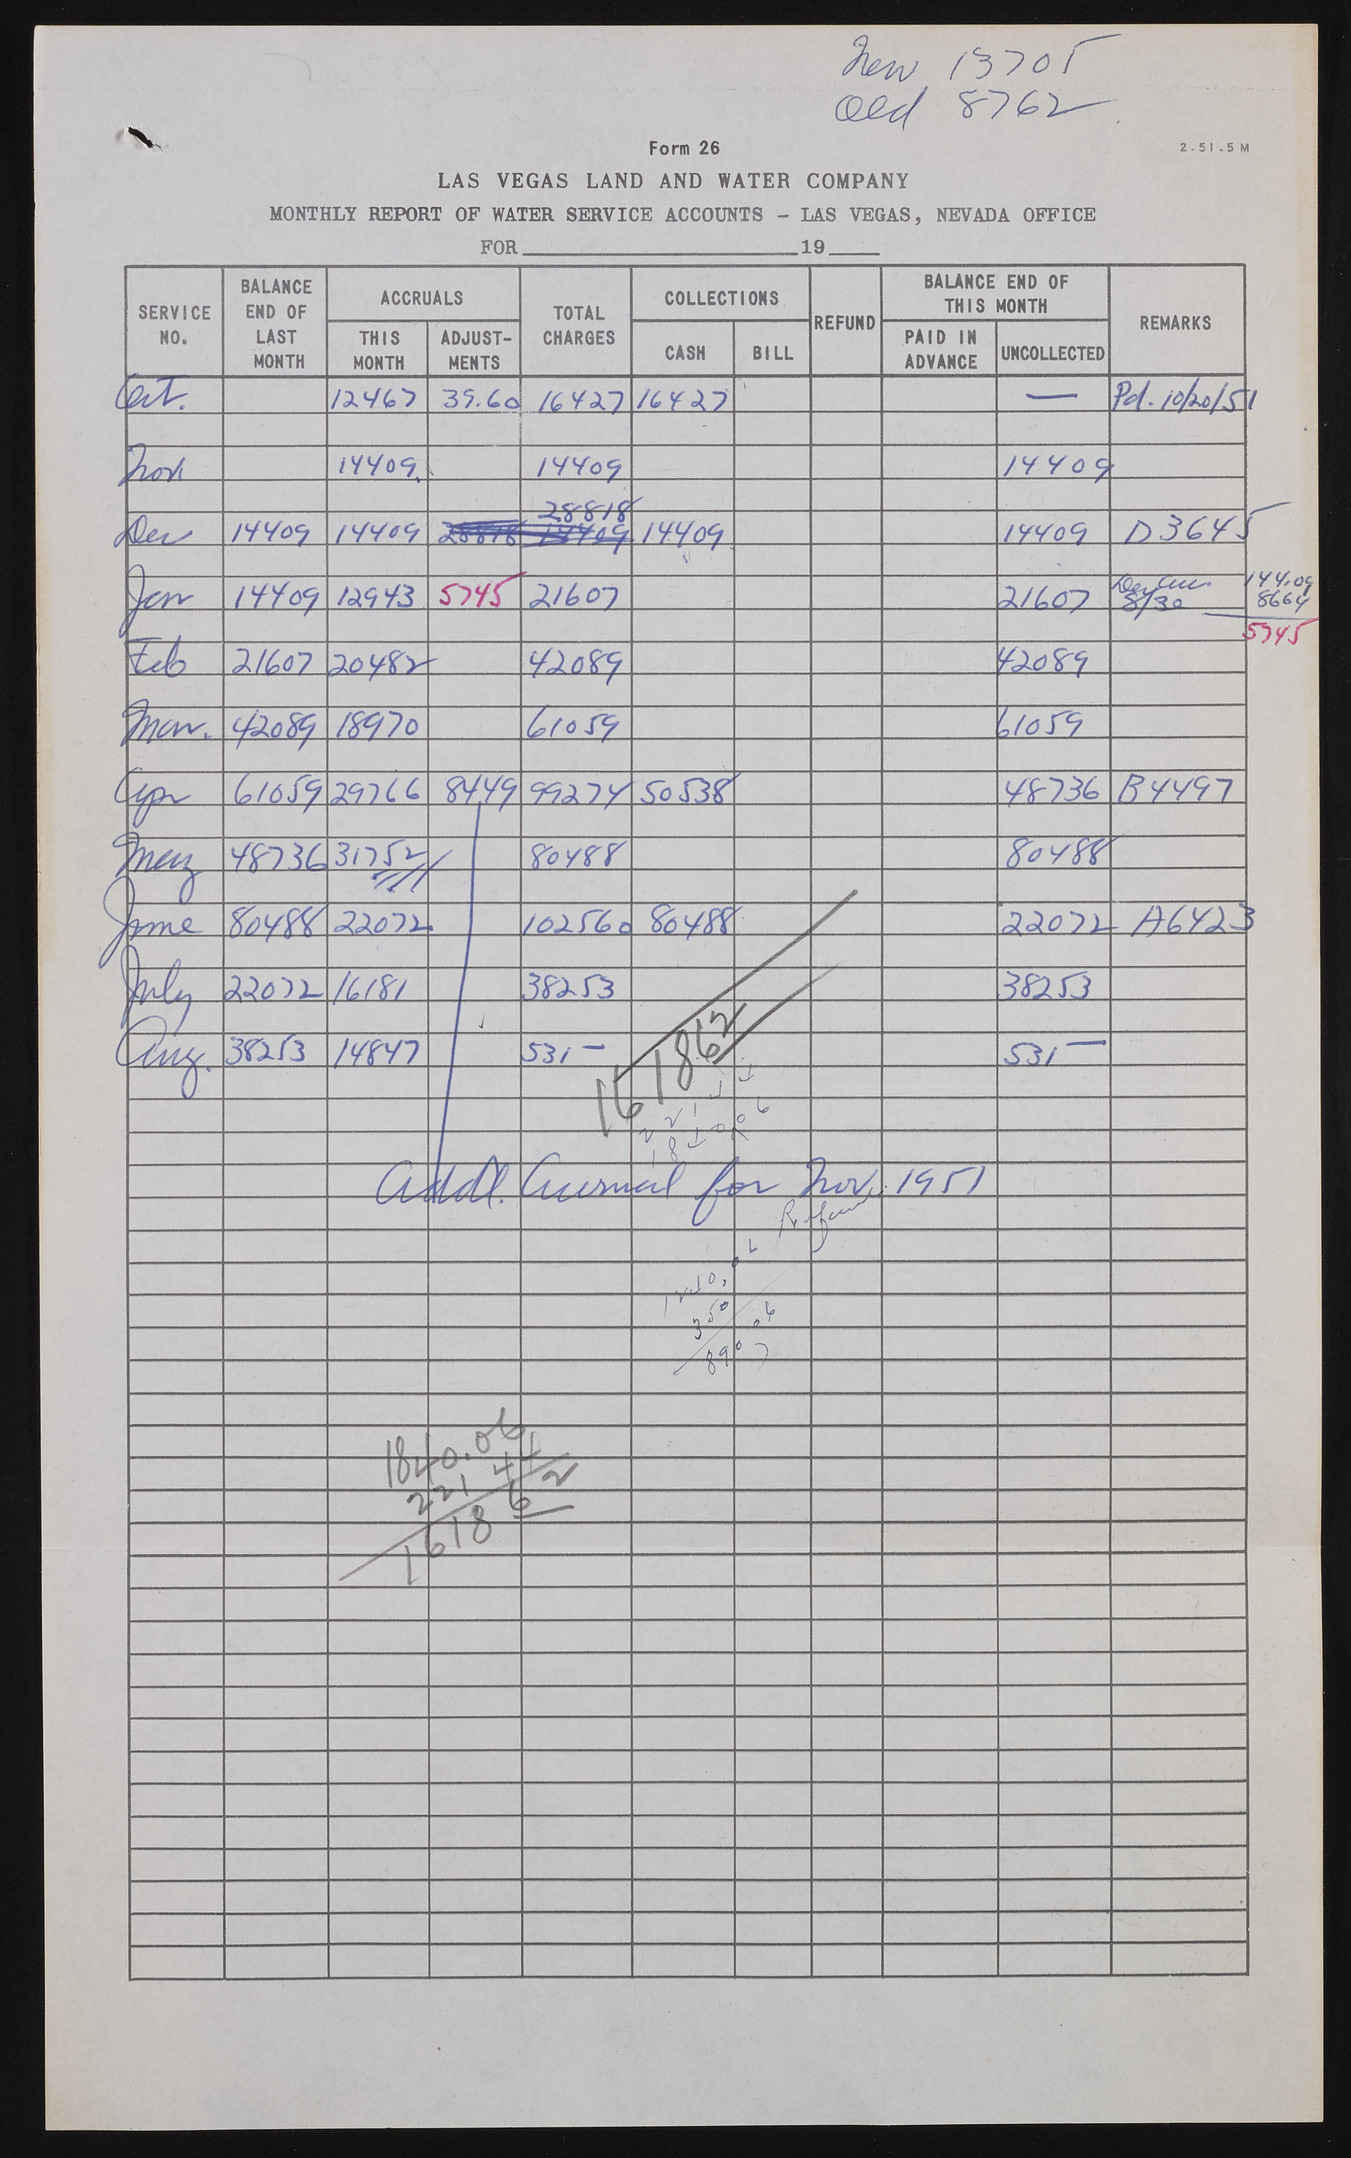 New 13705
Old 8762
Form 26
2-51.5M
LAS VEGAS LAND AND WATER COMPANY
MONTHLY REPORT OF WATER SERVICE ACCOUNTS – LAS VEGAS, NEVADA OFFICE
FOR 19
SERVICE NO. BALANCE END OF LAST MONTH ACCRUALS THIS MONTH ADJUST-MENTS TOTAL CHARGES COLLECTIONS CASH BILL REFUND BALANCE END OF THIS MONTH PAID IN ADVANCE UNCOLLECTED REMARKS
Oct. 12467 39.60 16427 16427 — Pd. 10/20/51
Nov 14409 14409 14409
28818
Dec 14409 14409 28818 14409 14409 14409 D3645
Jan 14409 12943 5745 21607 21607 8/30
144.09
8664
5745
Feb 21607 20482 42089 42089
Mar. 42089 18970 61059 61059
Apr 61059 29766 8449 99274 50538 48736 B4497
May 48736 31752 80488 80488
June 80488 22072 102560 80488 22072 A6423
July 22072 16181 38253 38253
Aug. 38253 14847 531 — 531 —
161862
Addl. Accrual for Nov. 1951
Refund
350
890
1840.06
221 44
1618 62